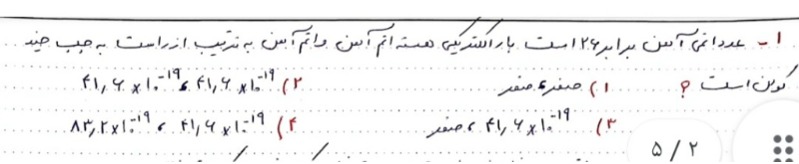 ۱- عدد اتمی آهن برابر ۲۶ است بار الکتریکی هسته اتم آهن و اتم آهن به ترتیب از راست به چپ چند
کولن است ؟ ۱) صفر، صفر ۲) ۴۱,۶ × ۱۰^-۱۹ ، ۴۱,۶ × ۱۰^-۱۹
۳) ۴۱,۶ × ۱۰^-۱۹ ، صفر ۴) ۴۱,۶ × ۱۰^-۱۹ ، ۸۳,۲ × ۱۰^-۱۹
۵ / ۲